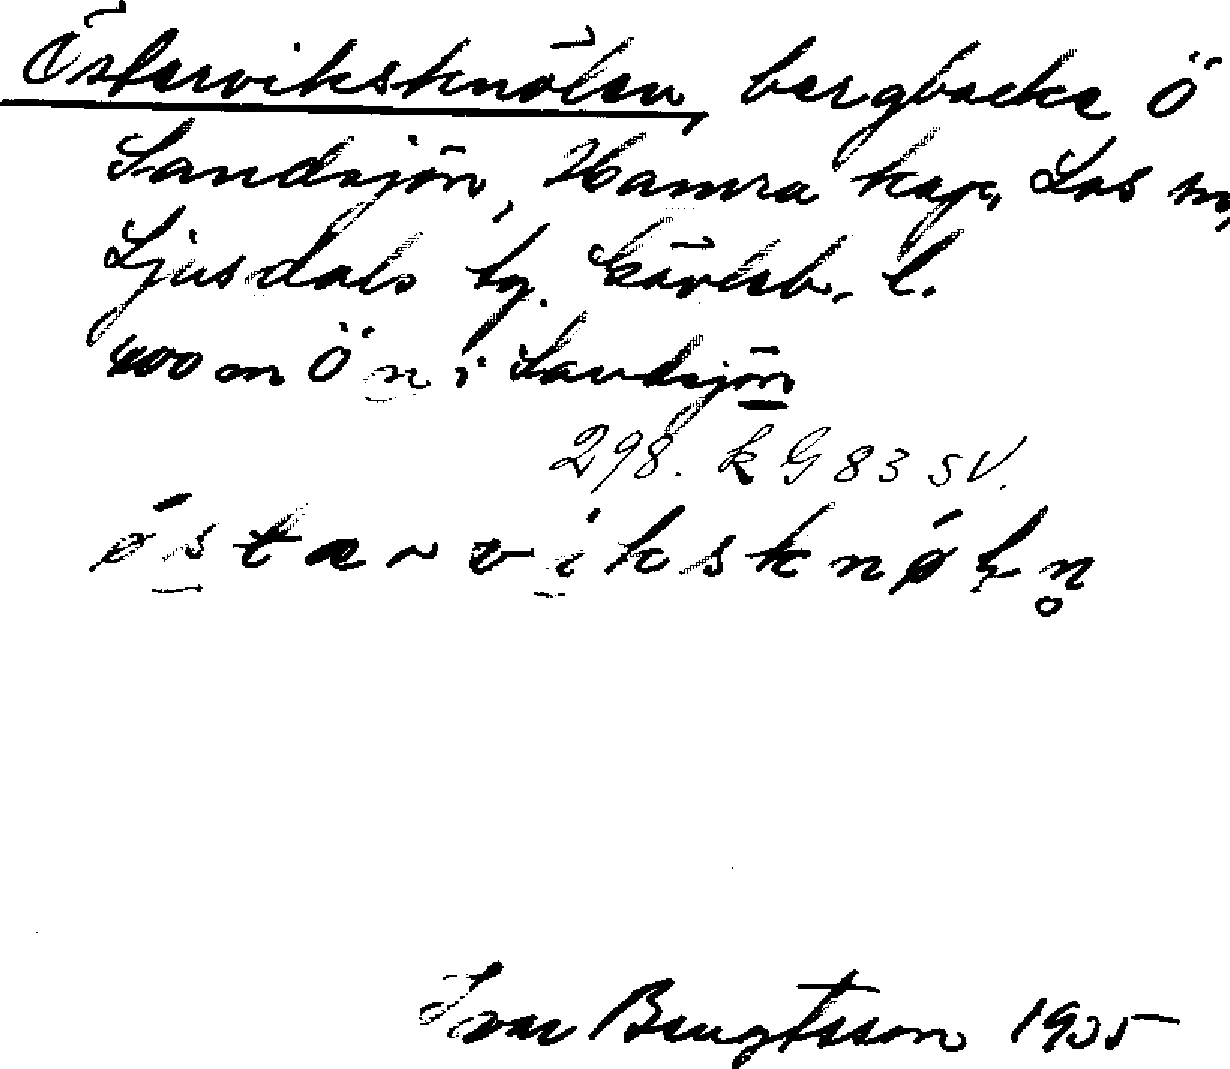 Österviksknölen, bergbacke Ö
Sandsjön, Hamra kap, Los sn,
Ljusdals tg. Gävleb. l.
400 m Ö n i Sandsjön
298. k G 83 SV.
ǿstarviksknǿln̥
Ivar Bengtsson 1935